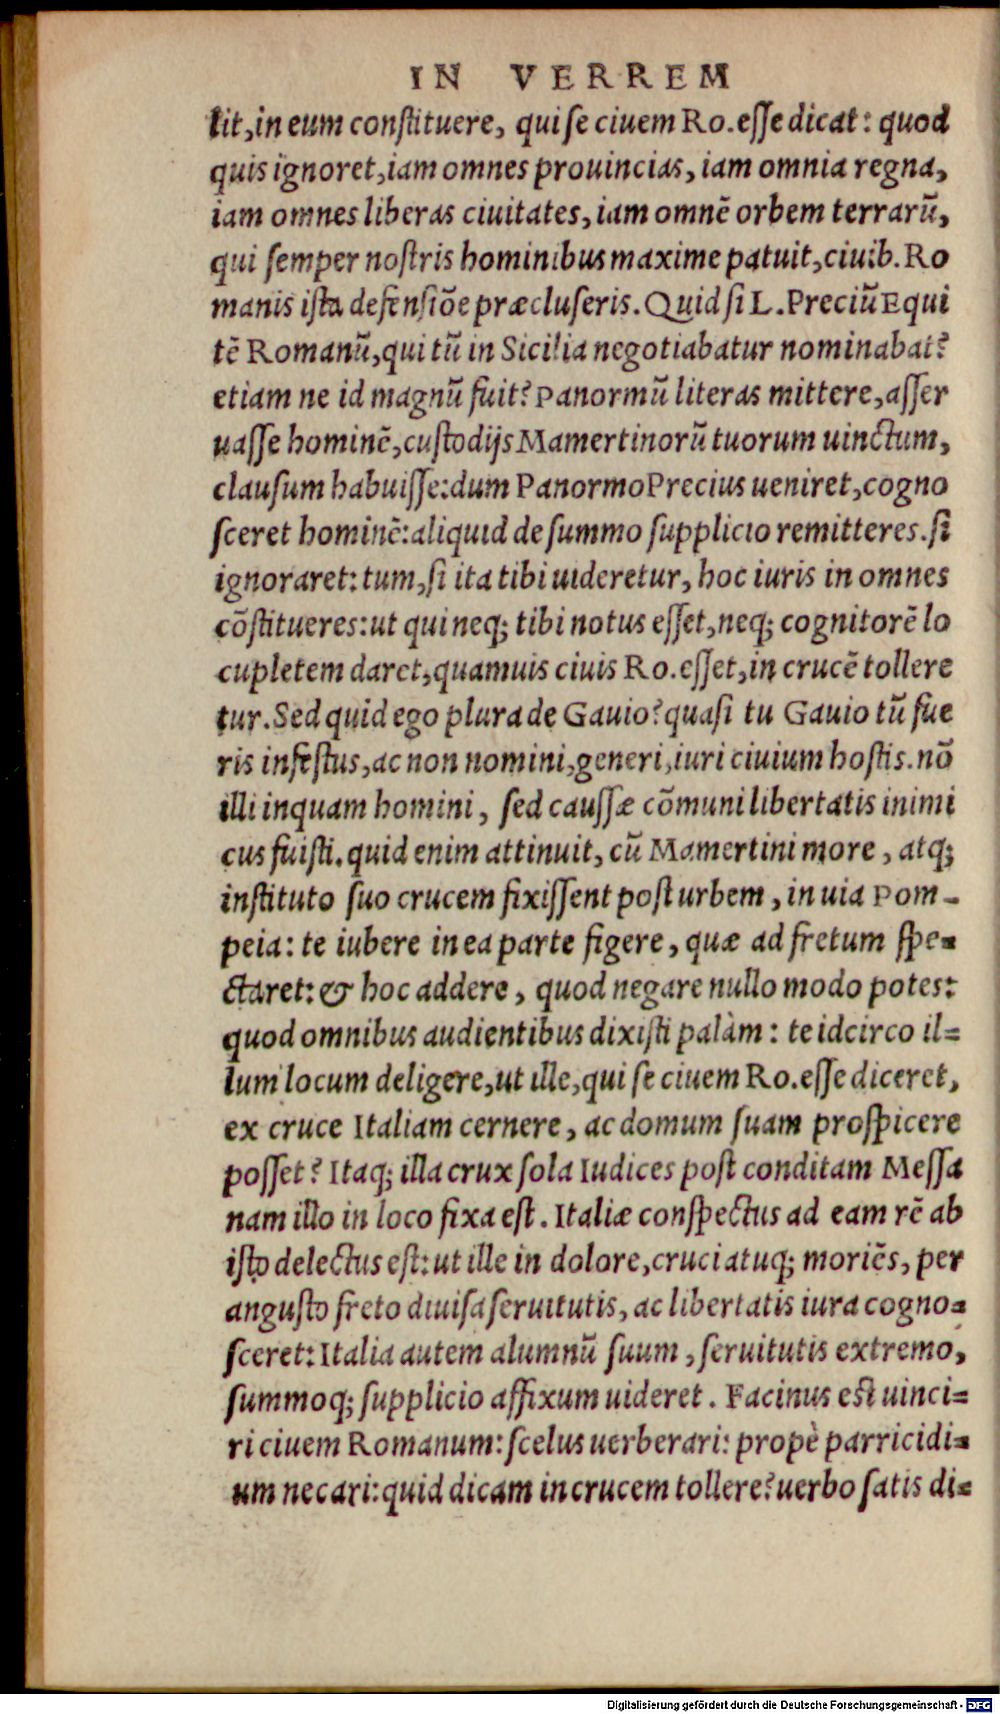 IN VERREM
tit,in eum constituere, qui se ciuem Ro.esse dicat: quod
quis ignoret,iam omnes prouincias, iam omnia regna,
iam omnes liberas ciuitates, iam omnē orbem terrarū,
qui semper nostris hominibus maxime patuit,ciuib.Ro
manis ista defensiōe præcluseris. Quid si L. Preciū Equi
tē Romanū,qui tū in Sicilia negotiabatur nominabat?
etiam ne id magnū fuit? Panormū literas mittere,asser
uasse hominē,custodijs Mamertinorū tuorum uinctum,
clausum habuisse:dum Panormo Precius ueniret,cogno
sceret hominē:aliquid de summo supplicio remitteres.si
ignoraret: tum,si ita tibi uideretur, hoc iuris in omnes
cōstitueres:ut qui neq; tibi notus esset,neq; cognitorē lo
cupletem daret,quamuis ciuis Ro.esset,in crucē tollere
tur.Sed quid ego plura de Gauio? quasi tu Gauio tū fue
ris infestus,ac non nomini,generi,iuri ciuium hostis.nō
illi inquam homini, sed caussæ cōmuni libertatis inimi
cus fuisti. quid enim attinuit, cū Mamertini more, atq;
instituto suo crucem fixissent post urbem, in uia Pom-
peia: te iubere in ea parte figere, quæ ad fretum spe=
ctaret: & hoc addere, quod negare nullo modo potes:
quod omnibus audientibus dixisti palàm: te idcirco il=
lum locum deligere,ut ille,qui se ciuem Ro.esse diceret,
ex cruce Italiam cernere, ac domum suam prospicere
posset? Itaq; illa crux sola Iudices post conditam Messa
nam illo in loco fixa est. Italiæ conspectus ad eam rē ab
isto delectus est: ut ille in dolore,cruciatuq; moriēs, per
angusto freto diuisa seruitutis, ac libertatis iura cogno=
sceret: Italia autem alumnū suum, seruitutis extremo,
summoq; supplicio affixum uideret. Facinus est uinci=
ri ciuem Romanum: scelus uerberari: propè parricidi=
um necari:quid dicam in crucem tollere? uerbo satis di=
Digitalisierung gefördert durch die Deutsche Forschungsgemeinschaft - DFG